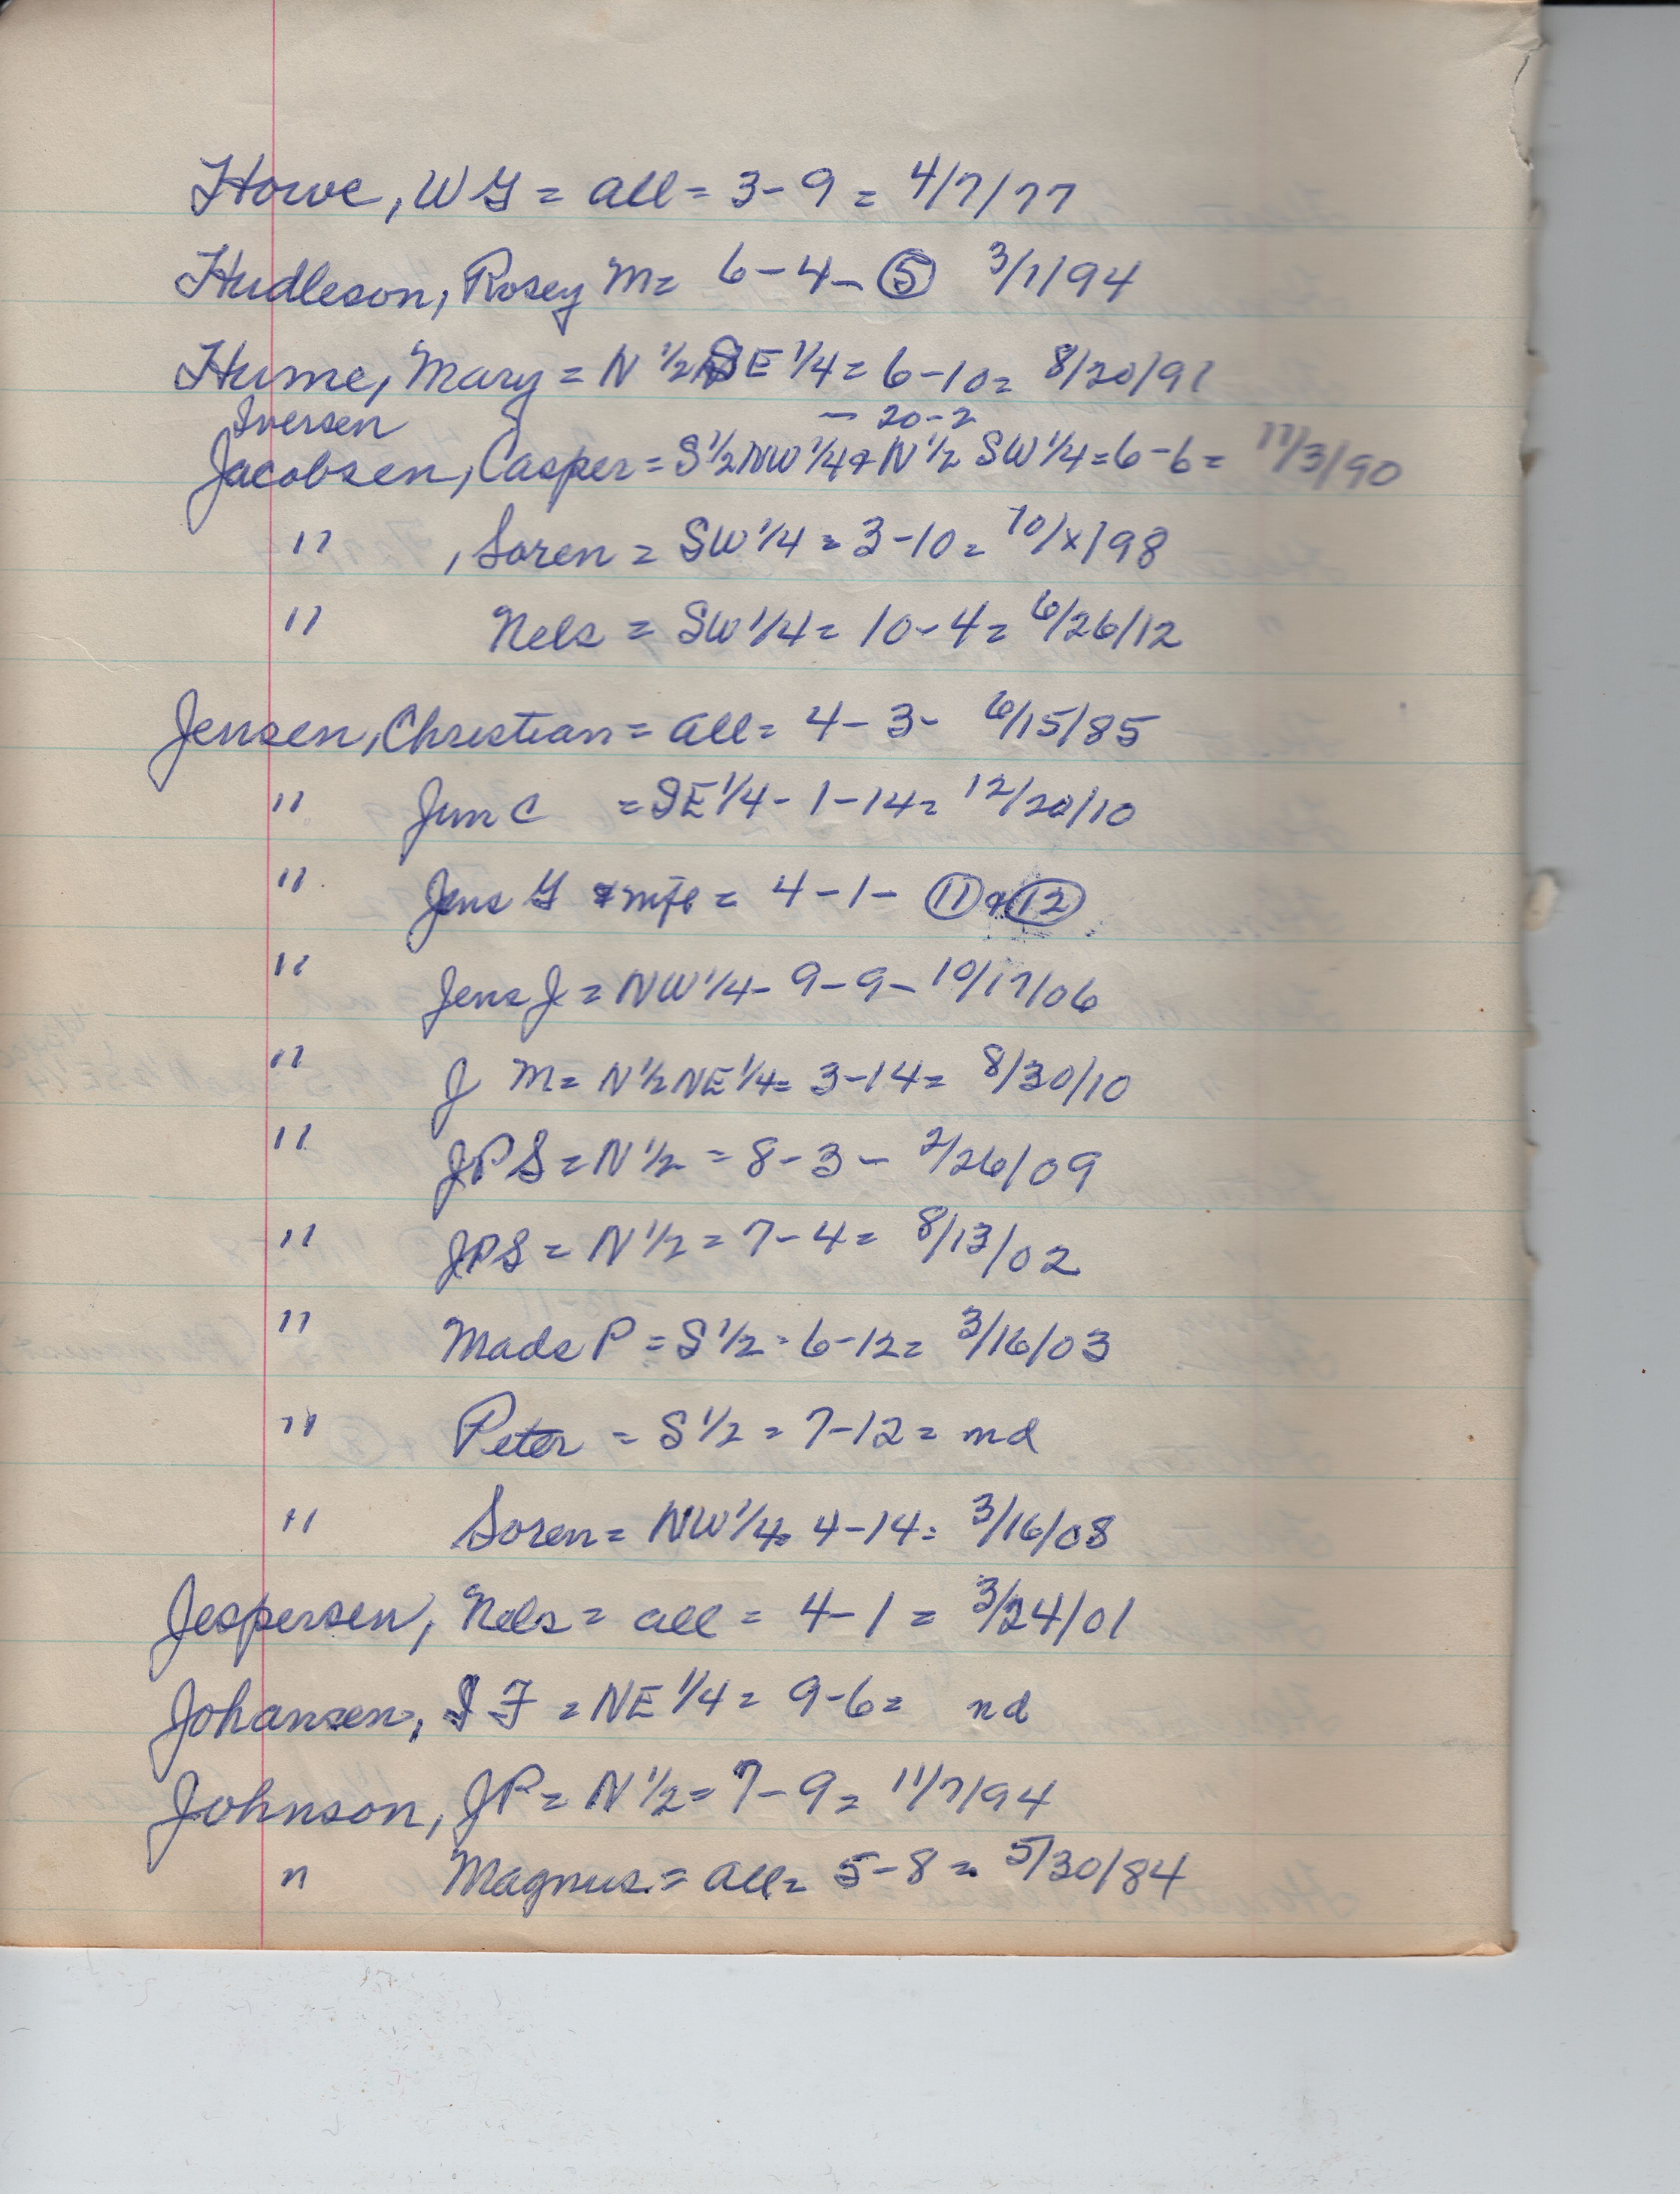 Howe, W G = all = 3-9 = 4/7/77
Hudleson, Rosey M = 6-4- ⑤ 3/1/94
Hume, Mary = N 1/2 SE 1/4 = 6-10 = 8/20/91
Iversen - 20-2
Jacobsen, Casper = S 1/2 NW 1/4 + N 1/2 SW 1/4 = 6-6 = 11/3/90
" , Soren = SW 1/4 = 3-10 = 10/x/98
" Nels = SW 1/4 = 10-4 = 6/26/12
Jensen, Christian = all = 4-3- 6/15/85
" C = SE 1/4 - 1-14 = 12/20/10
" Jens G & wife = 4-1- ⑪ + ⑫
" Jens J = NW 1/4 - 9-9- 10/17/06
" J M = N 1/2 NE 1/4 = 3-14 = 8/30/10
" JPS = N 1/2 = 8-3- 2/26/09
" JPS = N 1/2 = 7-4 = 8/13/02
" Mads P = S 1/2 - 6-12 = 3/16/03
" Peter = S 1/2 = 7-12 = nd
" Soren = NW 1/4 = 4-14 = 3/16/08
Jespersen, Nels = all = 4-1 = 3/24/01
Johansen, F = NE 1/4 = 9-6 = nd
Johnson, JP = N 1/2 = 7-9 = 11/7/94
" Magnus = all = 5-8 = 5/30/84